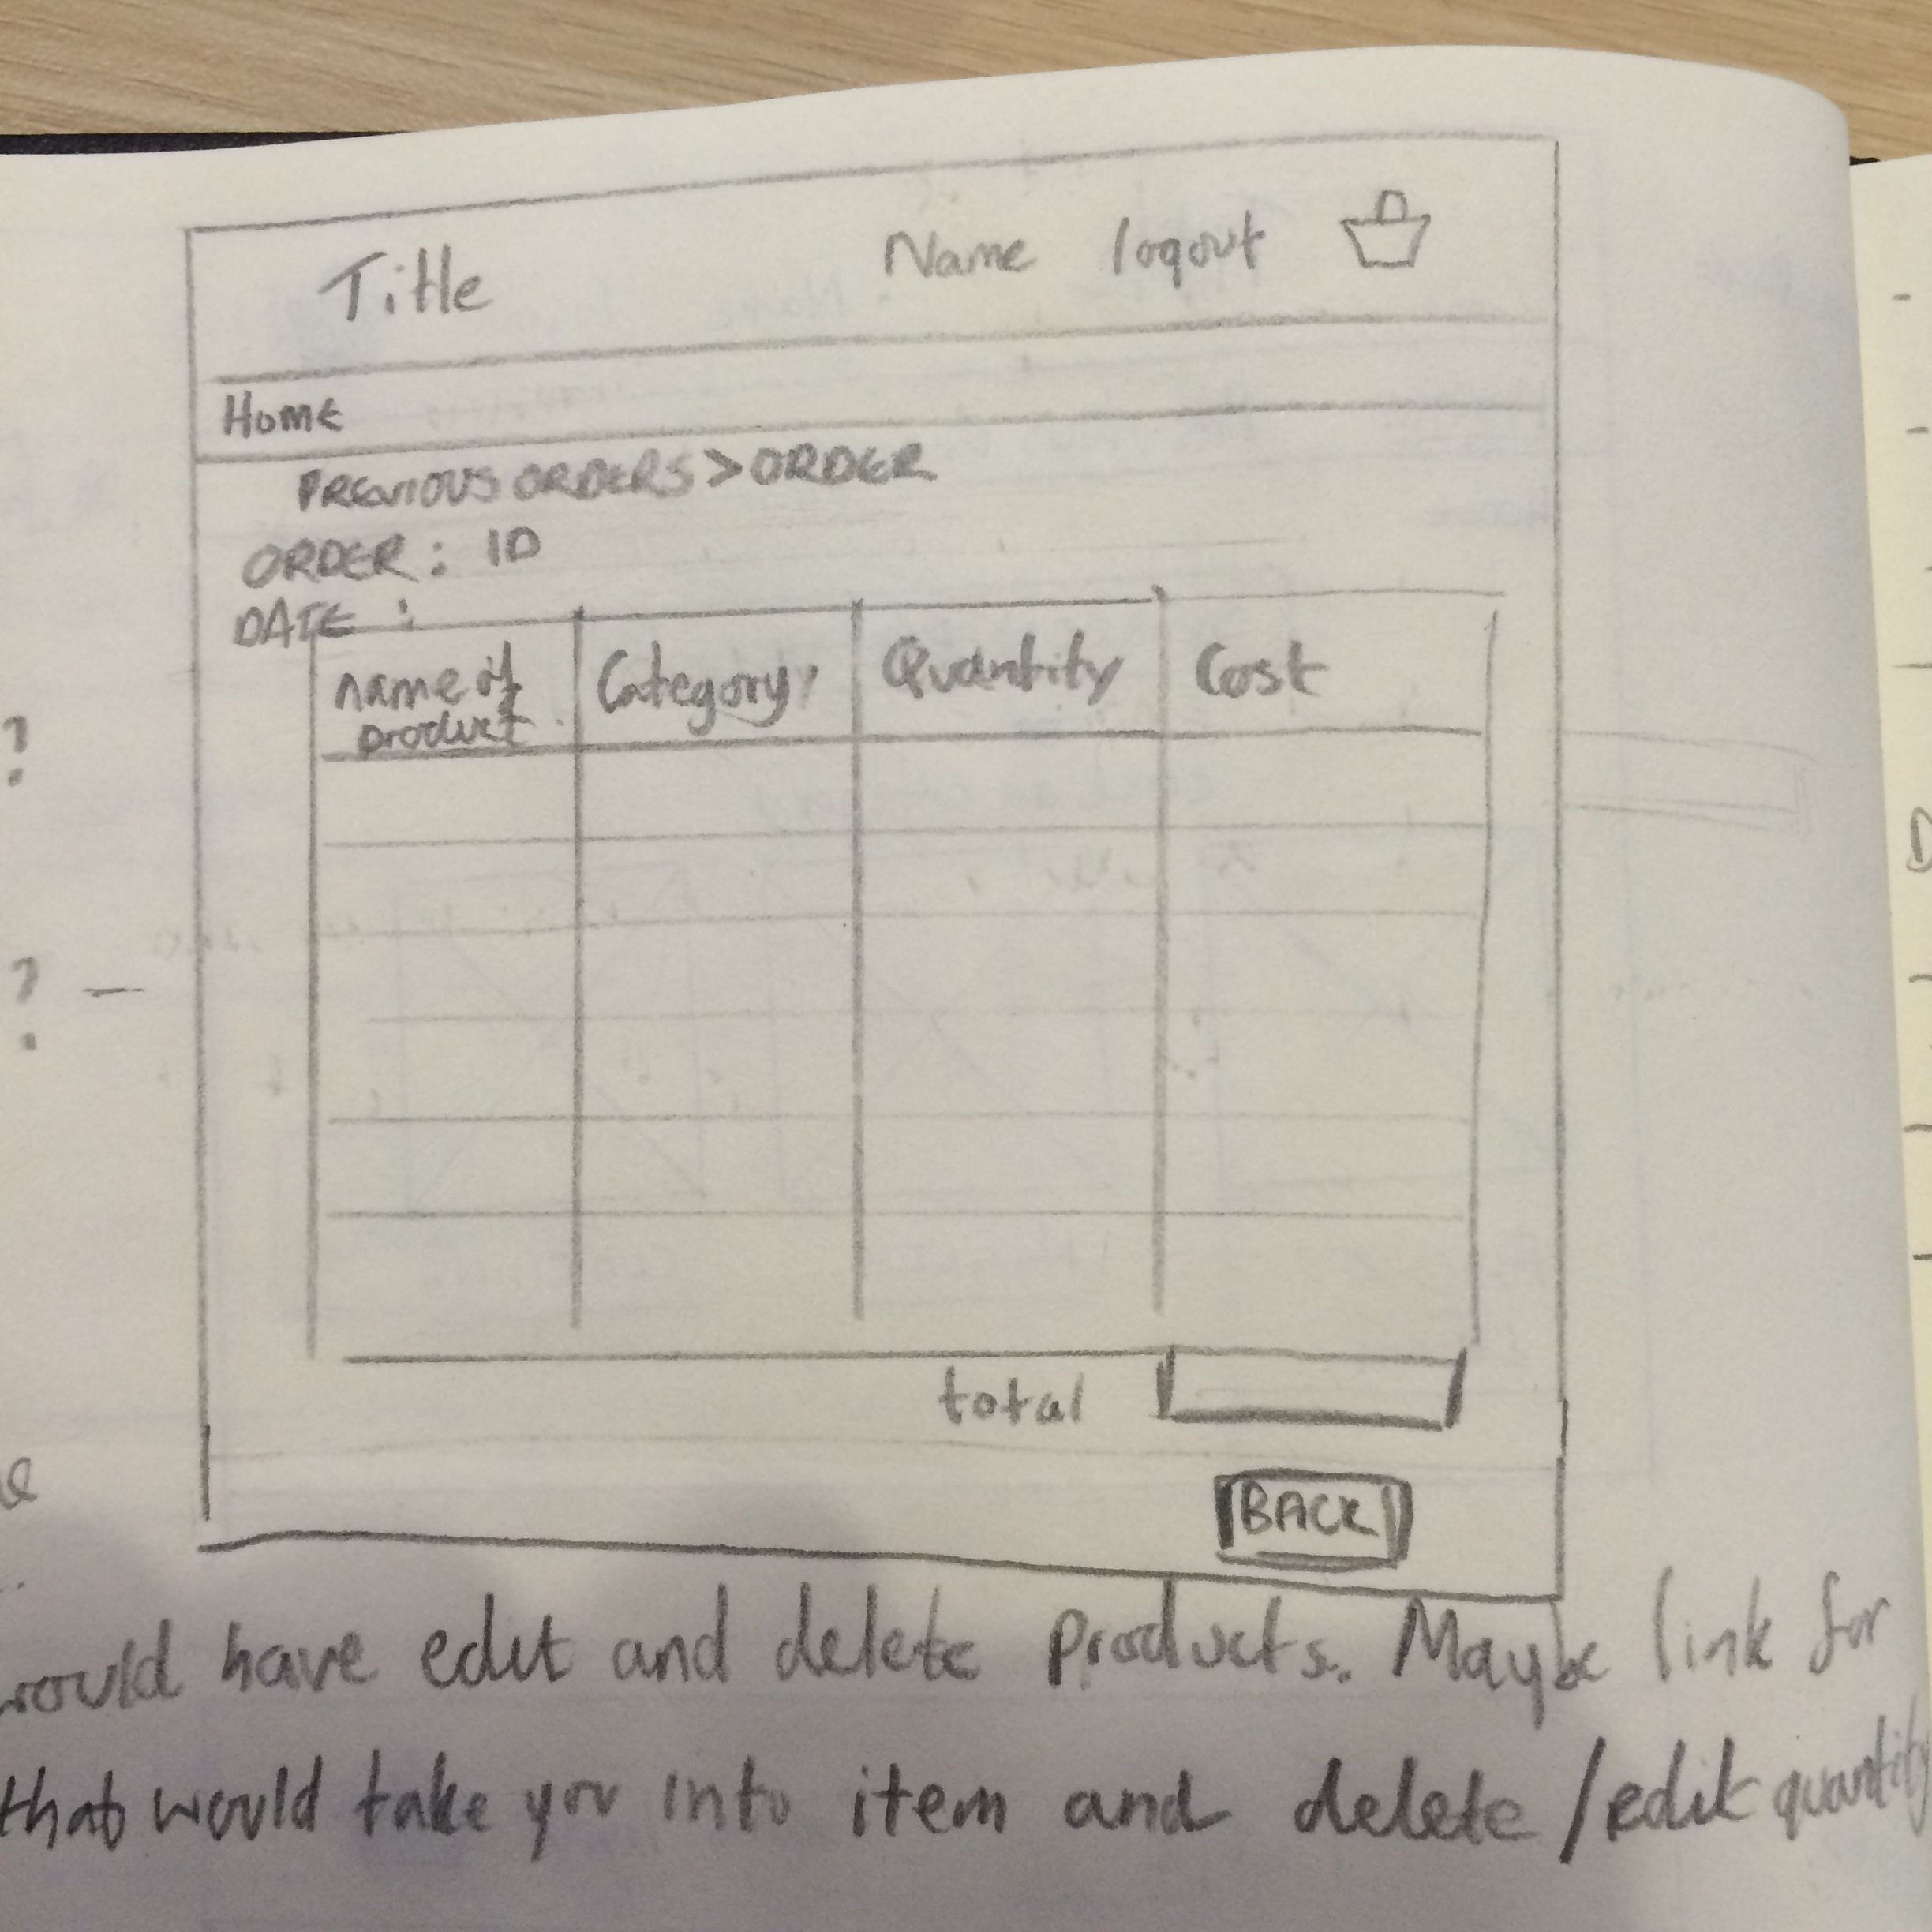 Title Name logout
Home
PREVIOUS ORDERS > ORDER
ORDER : ID
DATE :
name of product Category Quantity Cost
total
BACK
would have edit and delete products. Maybe link for
that would take you into item and delete / edit quantity
?
? —